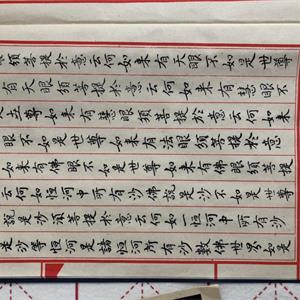 須菩提於意云何如來有天眼不如是世尊
有天眼須菩提於意云何如來有慧眼不
世尊如來有慧眼須菩提於意云何如來
眼不如是世尊如來有法眼須菩提於
如來有佛眼不如是世尊如來有佛眼須菩提
云何如恒河中所有沙佛說是沙不如是世尊
說是沙須菩提於意云何如一恒河中所有沙
是沙等恒河是諸恒河所有沙數佛世界如是